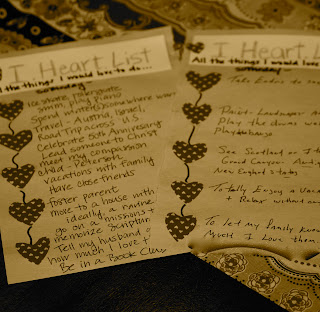 I Heart List
All the things I would love to do...
someday
Ice skate, rollerskate
swim, play piano
Spend winters somewhere warm
Travel - Austria, Israel,
Road Trip across U.S.
Celebrate 50th Anniversary
Lead someone to Christ
meet my compassion
child - Peterson
vacations with family
Have close friends
foster parent
move to a house with
ideally, a ravine
go on a missions t
memorize Scriptur
Tell my husband
how much I love
Be in a Book Clu
I Heart L
All the things I would love
someday
Take Eades to
Paint - Landscapes
Play the
Play
See Scotland or I
Grand Canyon
New England states
Totally Enjoy a Vaca
+ Relax without
To let my family know
Much I Love them